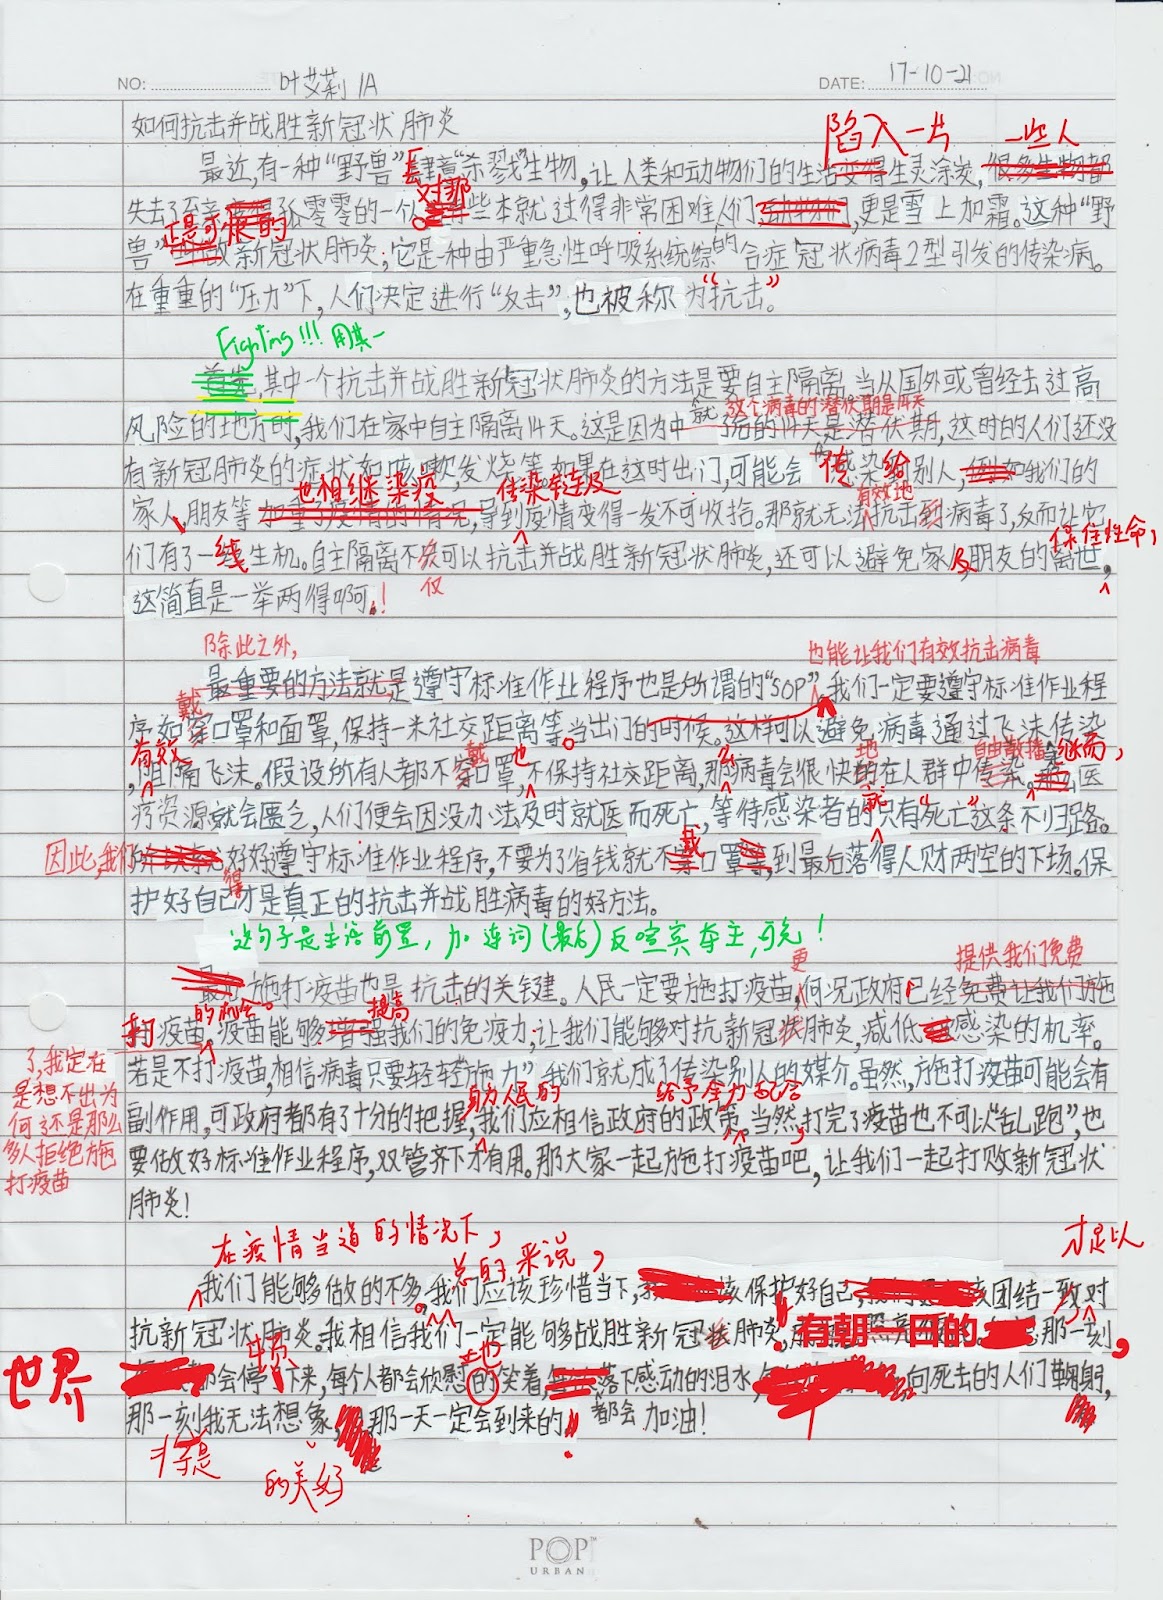 NO: 叶艾莉 1A DATE: 17-10-21
如何抗击并战胜新冠状肺炎
陷入一片 一些人
最近,有一种“野兽”肆意“杀戮”生物,让人类和动物们的生活变得生灵涂炭,很多生物都
对那
失去了至亲 孤零零的一个。 些本就过得非常困难人们 ,更是雪上加霜。这种“野
正是可恨的
兽” 新冠状肺炎,它是一种由严重急性呼吸系统综的合症冠状病毒2型引发的传染病。
在重重的“压力”下,人们决定进行“反击”,也被称为“抗击”。
Fighting!!! 用其一
首先,其中一个抗击并战胜新冠状肺炎的方法是要自主隔离,当从国外或曾经去过高
就 这个病毒的潜伏期是14天
风险的地方时,我们在家中自主隔离14天。这是因为中 的14天是潜伏期,这时的人们还没
有新冠肺炎的症状如咳嗽,发烧等,如果在这时出门,可能会传感染给别人,例如我们的
也相继染疫 传染链及 有效地
家人,朋友等加重了疫情的情况,导到疫情变得一发不可收拾。那就无法抗击到病毒了,反而让它
保住性命,
们有了一线生机。自主隔离不仅可以抗击并战胜新冠状肺炎,还可以避免家人及朋友的离世,
这简直是一举两得啊!
除此之外, 也能让我们有效抗击病毒
最重要的方法就是遵守标准作业程序也是所谓的“SOP”,我们一定要遵守标准作业程
戴
序如穿口罩和面罩,保持一米社交距离等。当出门的时候。这样可以避免病毒通过飞沫传染
有效 戴 也 么 地 自由散播 继而,
,阻隔飞沫。假设所有人都不穿口罩,不保持社交距离,那病毒会很快的在人群中传染。那么医
就
疗资源就会匮乏,人们便会因没办法及时就医而死亡,等待感染者的只有“死亡”这条不归路。
因此,我们 戴
好好遵守标准作业程序,不要为了省钱就不 口罩等,到最后落得人财两空的下场。保
得
护好自己才是真正的抗击并战胜病毒的好方法。
这句子是主语前置,加连词(最后)反喧宾夺主,可免!
更 提供我们免费
最后施打疫苗也是抗击的关键。人民一定要施打疫苗,何况政府已经免费让我们施
的机会。 提高
打疫苗。疫苗能够增强我们的免疫力,让我们能够对抗新冠状肺炎,减低 感染的机率。
若是不打疫苗,相信病毒只要轻轻“施力”,我们就成了传染别人的媒介。虽然,施打疫苗可能会有
了,我定在是想不出为何还是那么多人拒绝施打疫苗
助人民的 给予全力配合
副作用,可政府都有了十分的把握,我们应相信政府的政策。当然,打完了疫苗也不可以“乱跑”,也
要做好标准作业程序,双管齐下才有用。那大家一起施打疫苗吧,让我们一起打败新冠状
肺炎!
在疫情当道的情况下,
总的来说, 才足以
我们能够做的不多,我们应该珍惜当下, 保护好自己, 团结一致对
抗新冠状肺炎。我相信我们一定能够战胜新冠状肺炎! 有朝一日的 ,那一刻,
世界 都会停顿下来,每个人都会欣慰地的笑着, 落下感动的泪水, 向死去的人们鞠躬,
那一刻我无法想象, 那一天一定会到来的! 都会加油!
将是
的美好
POP
URBAN